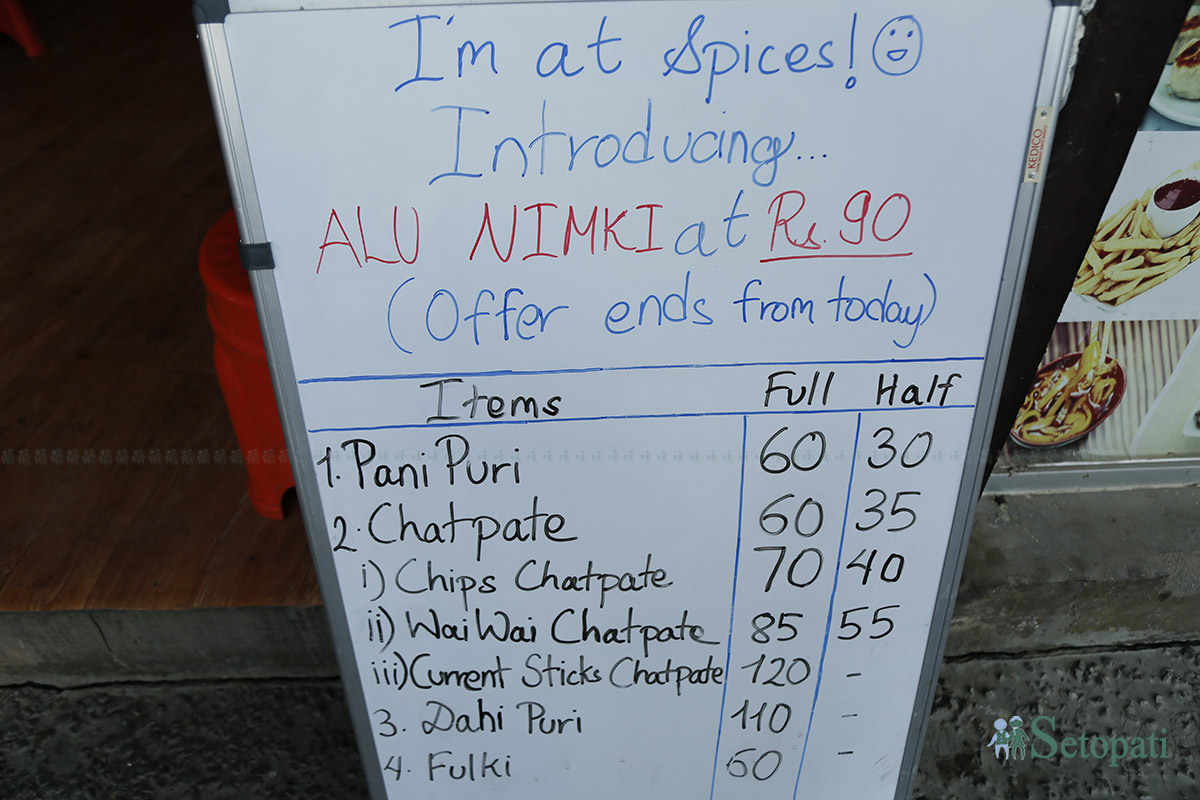 I'm at Spices!
Introducing...
ALU NIMKI at Rs. 90
(Offer ends from today)
Items Full Half
1. Pani Puri 60 30
2. Chatpate 60 35
i) Chips Chatpate 70 40
ii) WaiWai Chatpate 85 55
iii) Current Sticks Chatpate 120 -
3. Dahi Puri 110 -
4. Fulki 60 -
KEDICO
Setopati